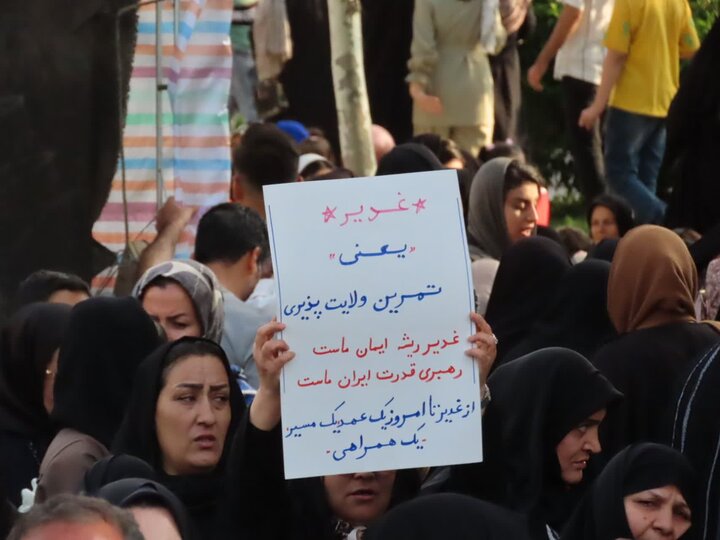 *غدیر*
"یعنی"
تمرین ولایت پذیری
غدیر ریشه ایمان ماست
رهبری قدرت ایران ماست
از غدیر تا امروز یک عهد یک مسیر
-یک همراهی-